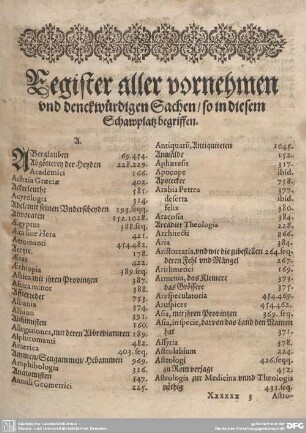 Register aller vornehmen
vnd denckwürdigen Sachen / so in diesem
Schawplatz begriffen.
A.
ABerglauben 69.454.
Abgötterey der Heyden 228.229.
Academici 166.
Achaia Græciæ 402.
Ackerleuthe 581.
Acyrologia 314.
Adel 193.seqq.
Advocaten 152.1028.
Ægyptus 388.seq.
421.
Aeromanti 454.482.
Aerzte 178.
Asia 302.
Æthiopia 389.seq.
Africa mit jhren Provintzen 387.
Africa minor 388.
421.
Albania 374.
Albion 351.
Alchimisten
Allegationes, mit deren Abbreviaturen 189.
Alphitomanti 482.
America 403.seq.
Ammen / Seugammen / Hebammen 969.
Amphibologia 316.
Anatomisten 325.
Annuli Geometrici 225.
Antiquarii, Antiquiteten 1045.
Anwälde 152.
Aphæresis 317.
Apocope ibid.
Apotecker 758.
Arabia Petræa 377.
deserta ibid.
felix 380.
Aracosia 384.
Arcadier Theologia 228.
Architecti 866.
Aria 384.
Aristocratia, vnd wie die zubestellen 264.seq.
deren Fehl vnd Mängel 26.
Arithmetici 169.
Armenia, das Kleinere 373.
das Grössere 375.
Aruspices 454.462
Asia, mit jhren Provintzen 369.seq.
Asia, in specie, dar von das Land den Namen
hat 371.
Assyria 378.
Astrolabium 224.
Astrologi 426.seqq.
zu Rom verjagt 452.
Astrologia zur Medicina vnnd Theologia
nöthig 431.seq.
Xxxxxx 3 Astro-